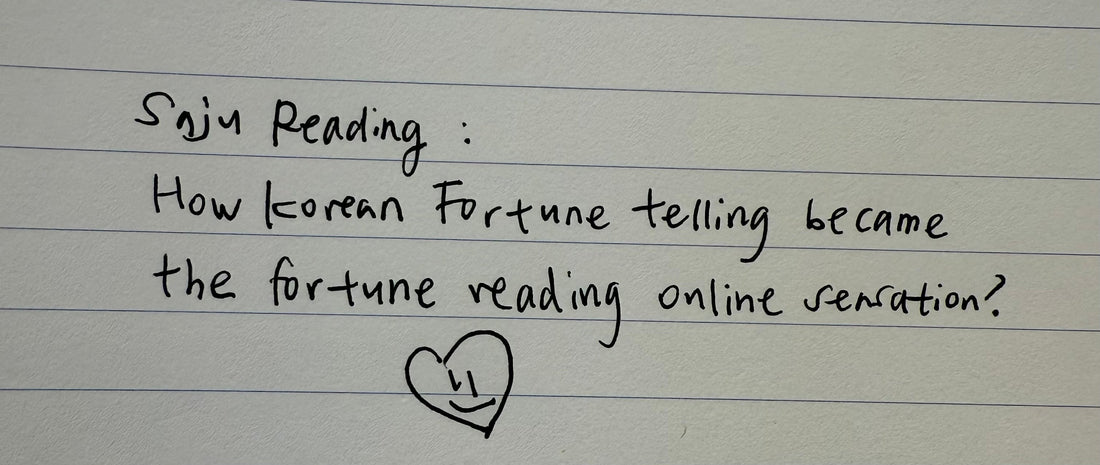 Saju Reading :
How Korean Fortune telling became
the fortune reading online sensation?